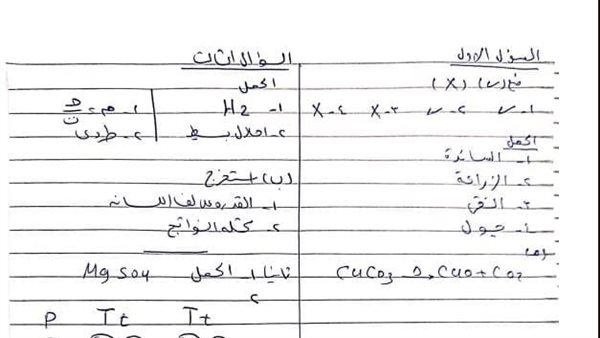 السؤال الاول
ضع (✓) (X)
١- ✓ ٢- ✓ ٣- X ٤- X
اكمل
١- السائدة
٢- الزراعة
٣-
٤- جول
CuCO3 Δ→ CuO + CO2
السؤال الثالث
اكمل
١- H2
٢- احلال بسيط
١- م =
٢- طردى
(ب) استخرج
١- القدرة على لف اللسان
٢- كتله النواتج
ثانيا ١- اكمل MgSO4
٢
P Tt Tt